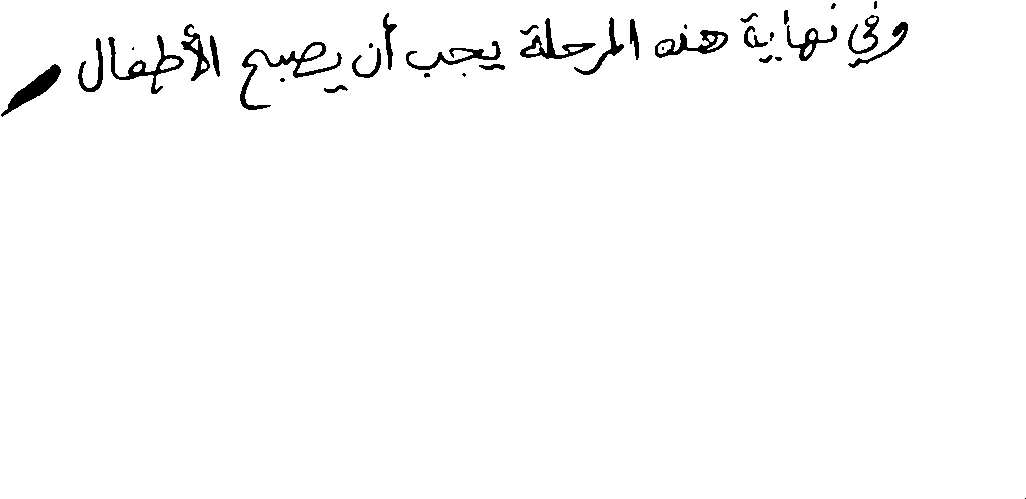 وفي نهاية هذه المرحلة يجب أن يصبح الأطفال